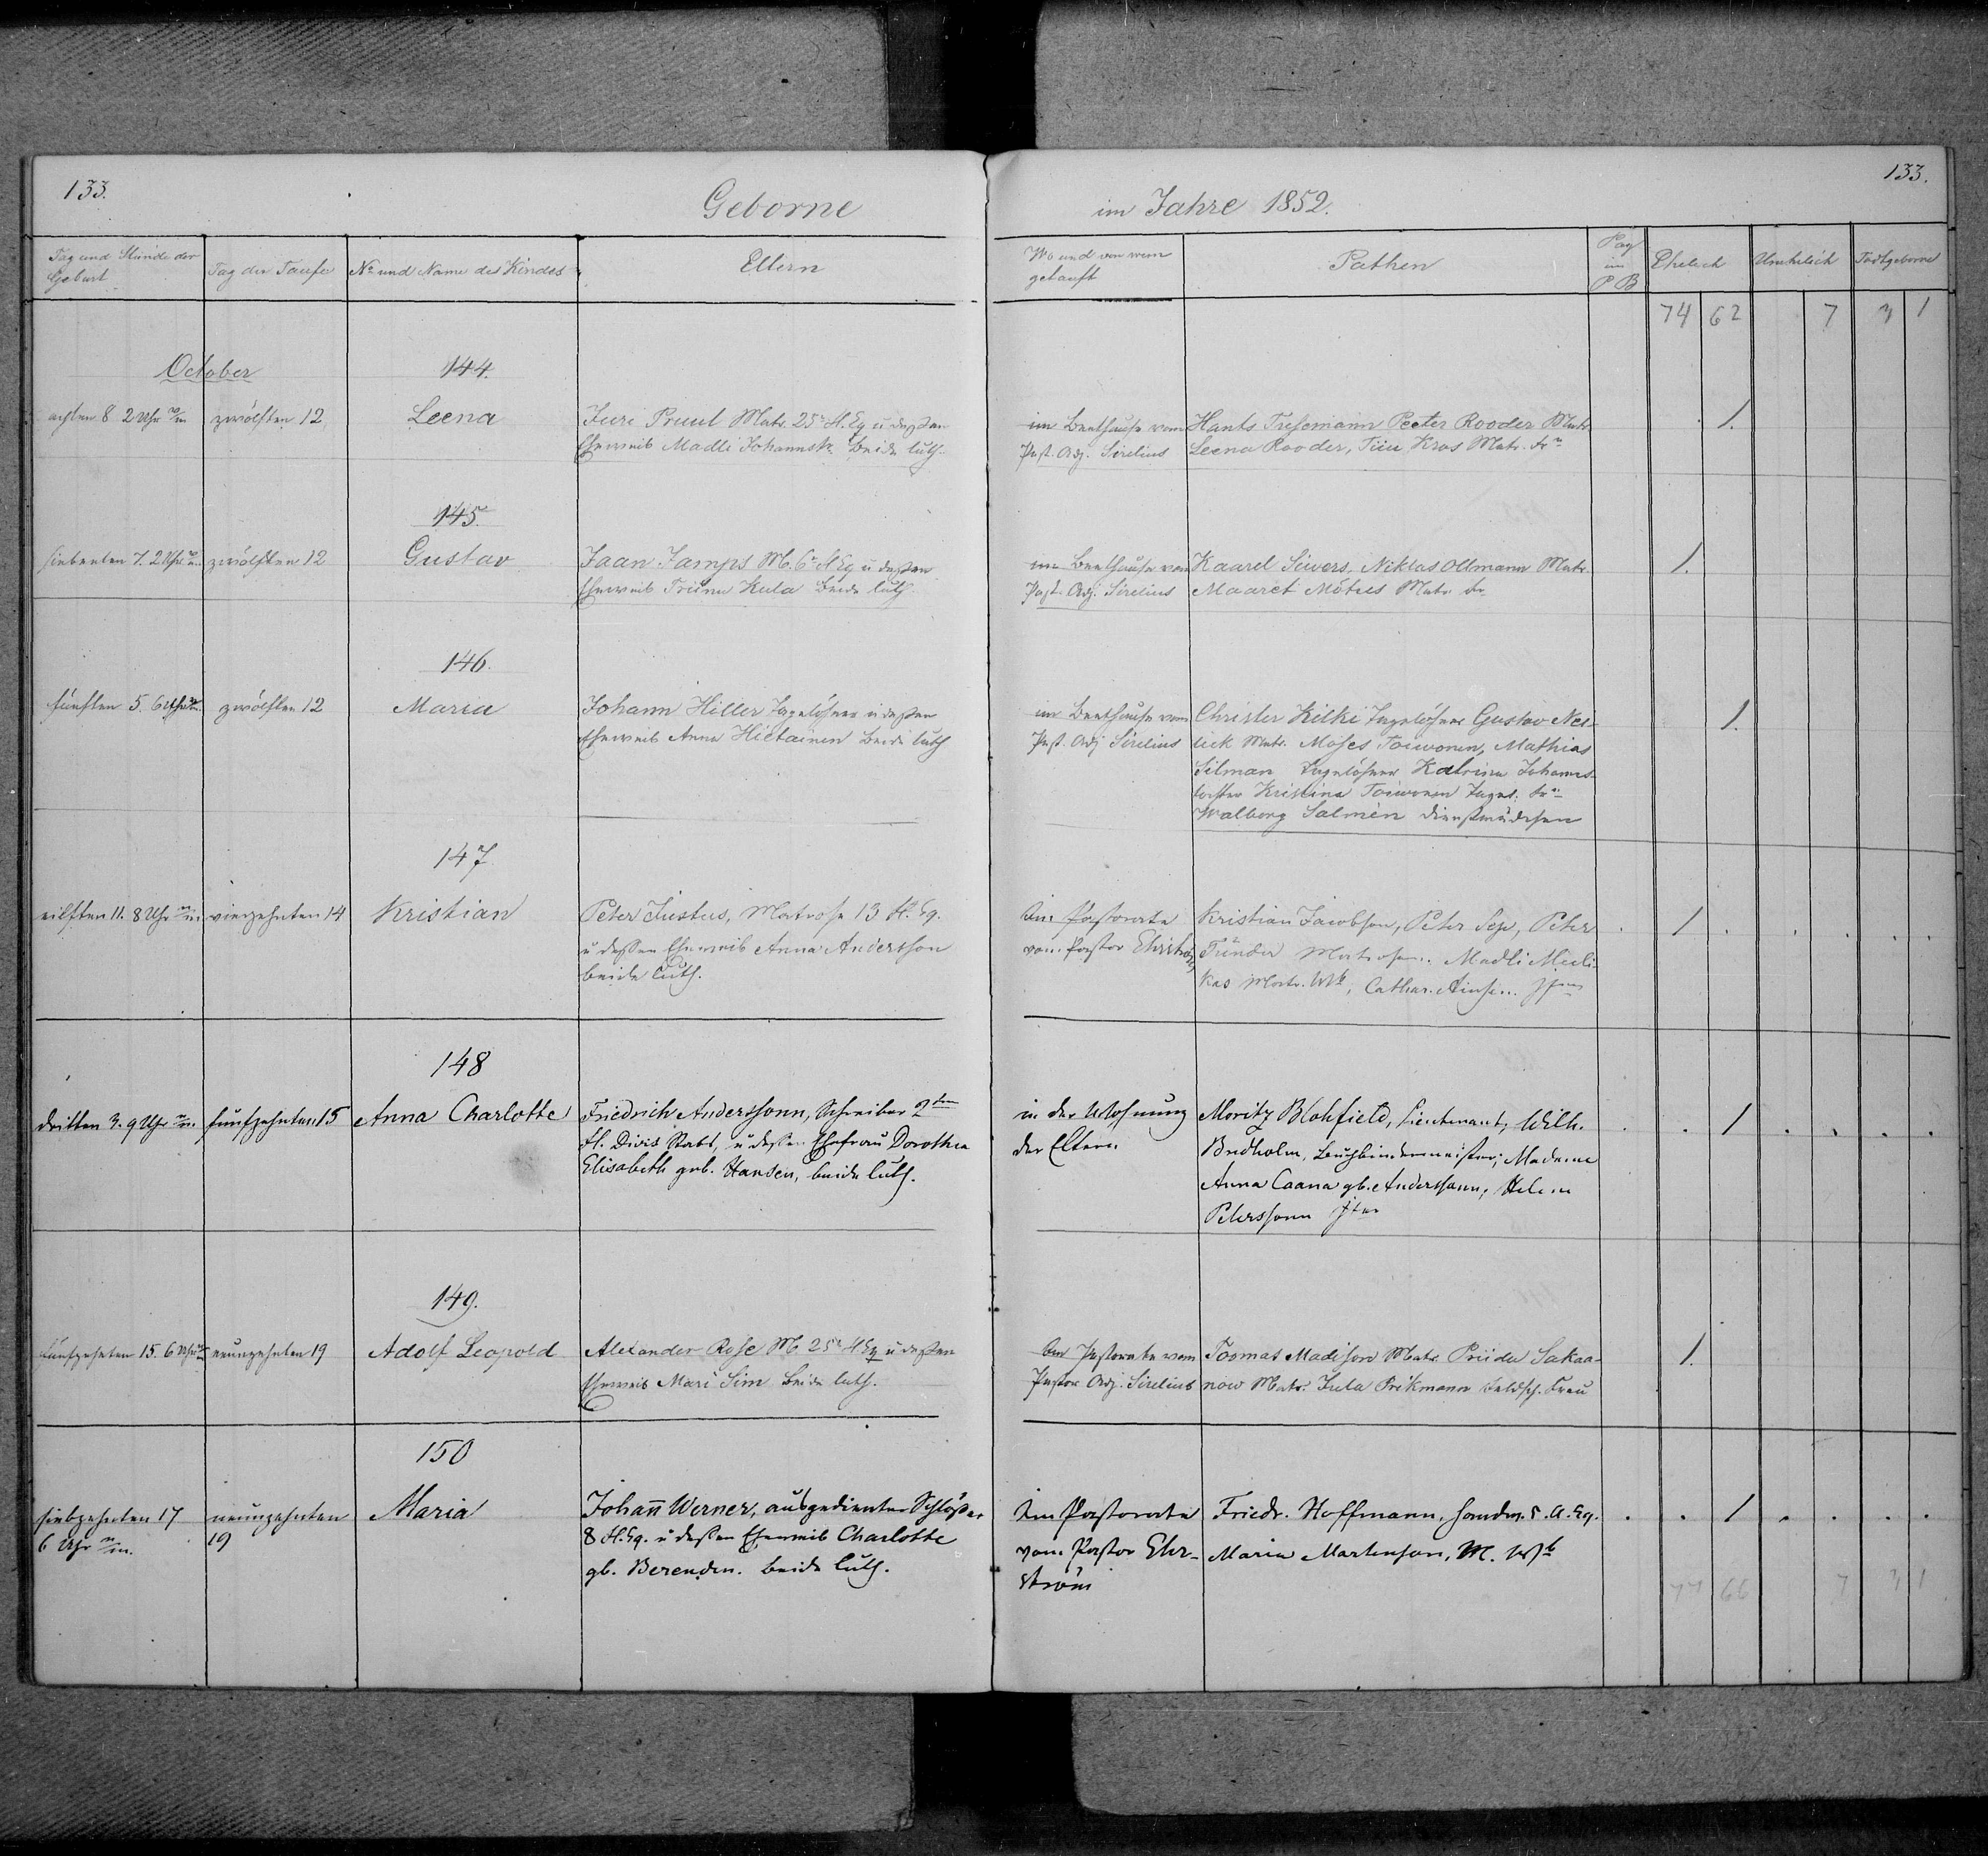 133.
Geborne
im Jahre 1852.
133.
Tag und Stunde der Geburt
Tag der Taufe
No und Name des Kindes
Eltern
Wo und von wem getauft
Pathen
Pag im P B
Ehelich
Unehelich
Todtgeborne
74 62 7 3 1
October
144.
achten 8 2 Uhr
zwölften 12
Leena
Juri Pruul Matr. 25r Fl. Eq u deßen
Eheweib Madli Johannsk. beide luth.
im Bethause vom
Past. Adj. Sirelius
Hants Tresemann Peeter Rooder Matr
Leena Rooder, Tiiu Kros Matr. Fr
1.
145.
siebenten 7. 2 Uhr
zwölften 12
Gustav
Jaan Jamps M. 6r Fl Eq u deßen
Eheweib Triinu Kula beide luth
im Bethause vom
Past. Adj. Sirelius
Kaarel Siwers, Niklas Ollmann Matr.
Maaret Mötus Matr. Fr
1.
146.
fünften 5. 6 Uhr
zwölften 12
Maria
Johann Hiller Tagelöhner u deßen
Eheweib Anna Hietainen beide luth
im Bethause vom
Past. Adj Sirelius
Christer Kilki Tagelöhner Gustav Nei-
lick Matr. Moses Toiwonen, Mathias
Silman Tagelöhner Katrina Johanns-
tochter Kristina Toiwonen Tagel. Fr
Walborg Salmén Dienstmädchen
1.
147
eilften 11. 8 Uhr
vierzehnten 14
Kristian
Peter Justus, Matrose 13 Fl. Eq.
u deßen Eheweib Anna Andersson
beide luth.
Im Pastorate
vom Pastor
Kristian Jacobson, Peter Sep, Peter
Tünder Matrosen. Madli Meeli-
kas Matr. Wb, Cathar.
1
148
dritten 3. 9 Uhr
fünfzehnten 15
Anna Charlotte
Friedrich Anderssonn, Schreiber 2ten
Fl. Divis Stabs, u deßen Ehefrau Dorothea
Elisabeth geb. Hansen, beide luth.
in der Wohnung
der Eltern
Moritz Blohfield, Lieutenant, Wilh.
Bredholm, Buchbindermeister, Madame
Anna Caana gb. Anderssonn, Helene
Peterssonn
1
149.
fünfzehnten 15. 6 Uhr
neunzehnten 19
Adolf Leopold
Alexander Rose M. 25r Fl Eq u deßen
Eheweib Mari Sim beide luth.
Im Pastorate vom
Pastor Adj. Sirelius
Toomas Madison Matr. Priidu Sakaa-
now Matr. Jula Prikmann Feldsch. Frau
1.
150
siebzehnten 17
6 Uhr
neunzehnten
19
Maria
Johann Werner, ausgedienter Schloßer
8 Fl. Eq. u deßen Eheweib Charlotte
gb. Berenden. beide luth.
Im Pastorate
vom Pastor Ehr-
ström
Friedr. Hoffmann,
Maria Martenson, M. Wb
1
77 66 7 3 1